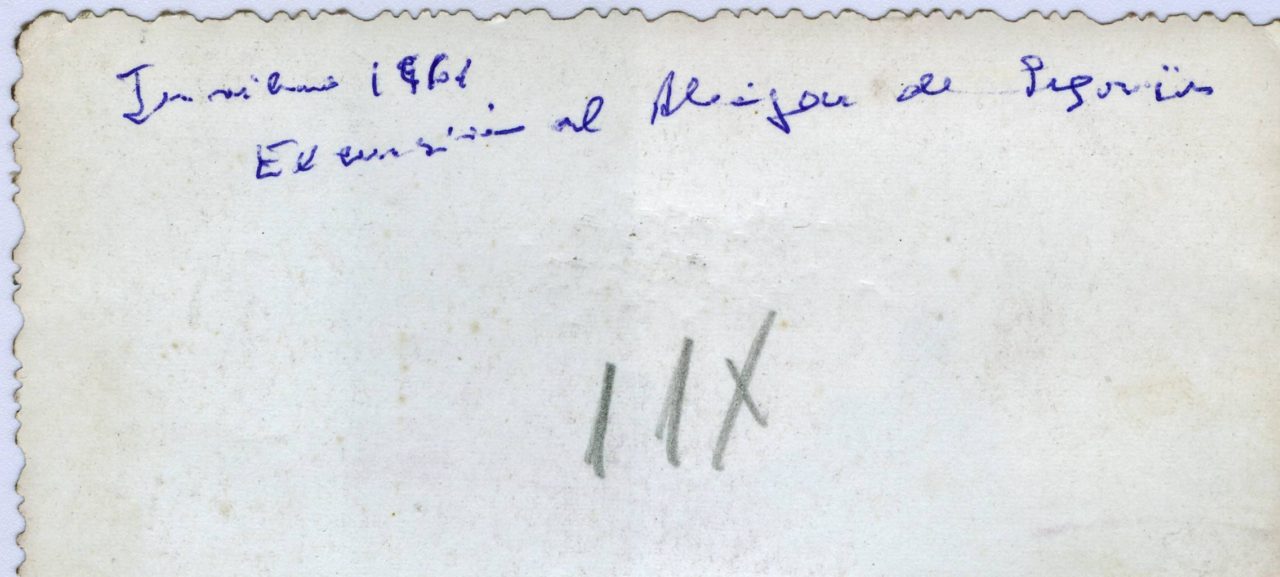 1961
Excursión al Alcázar de Segovia
11X